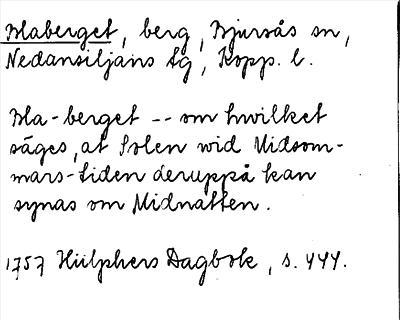 Blaberget, berg, Bjursås sn,
Nedansiljans tg, Kopp. l.
Bla-berget -- om hwilket
säges, at Solen wid Midsom-
mars-tiden deruppå kan
synas om Midnatten.
1757 Hülphers Dagbok, s. 444.